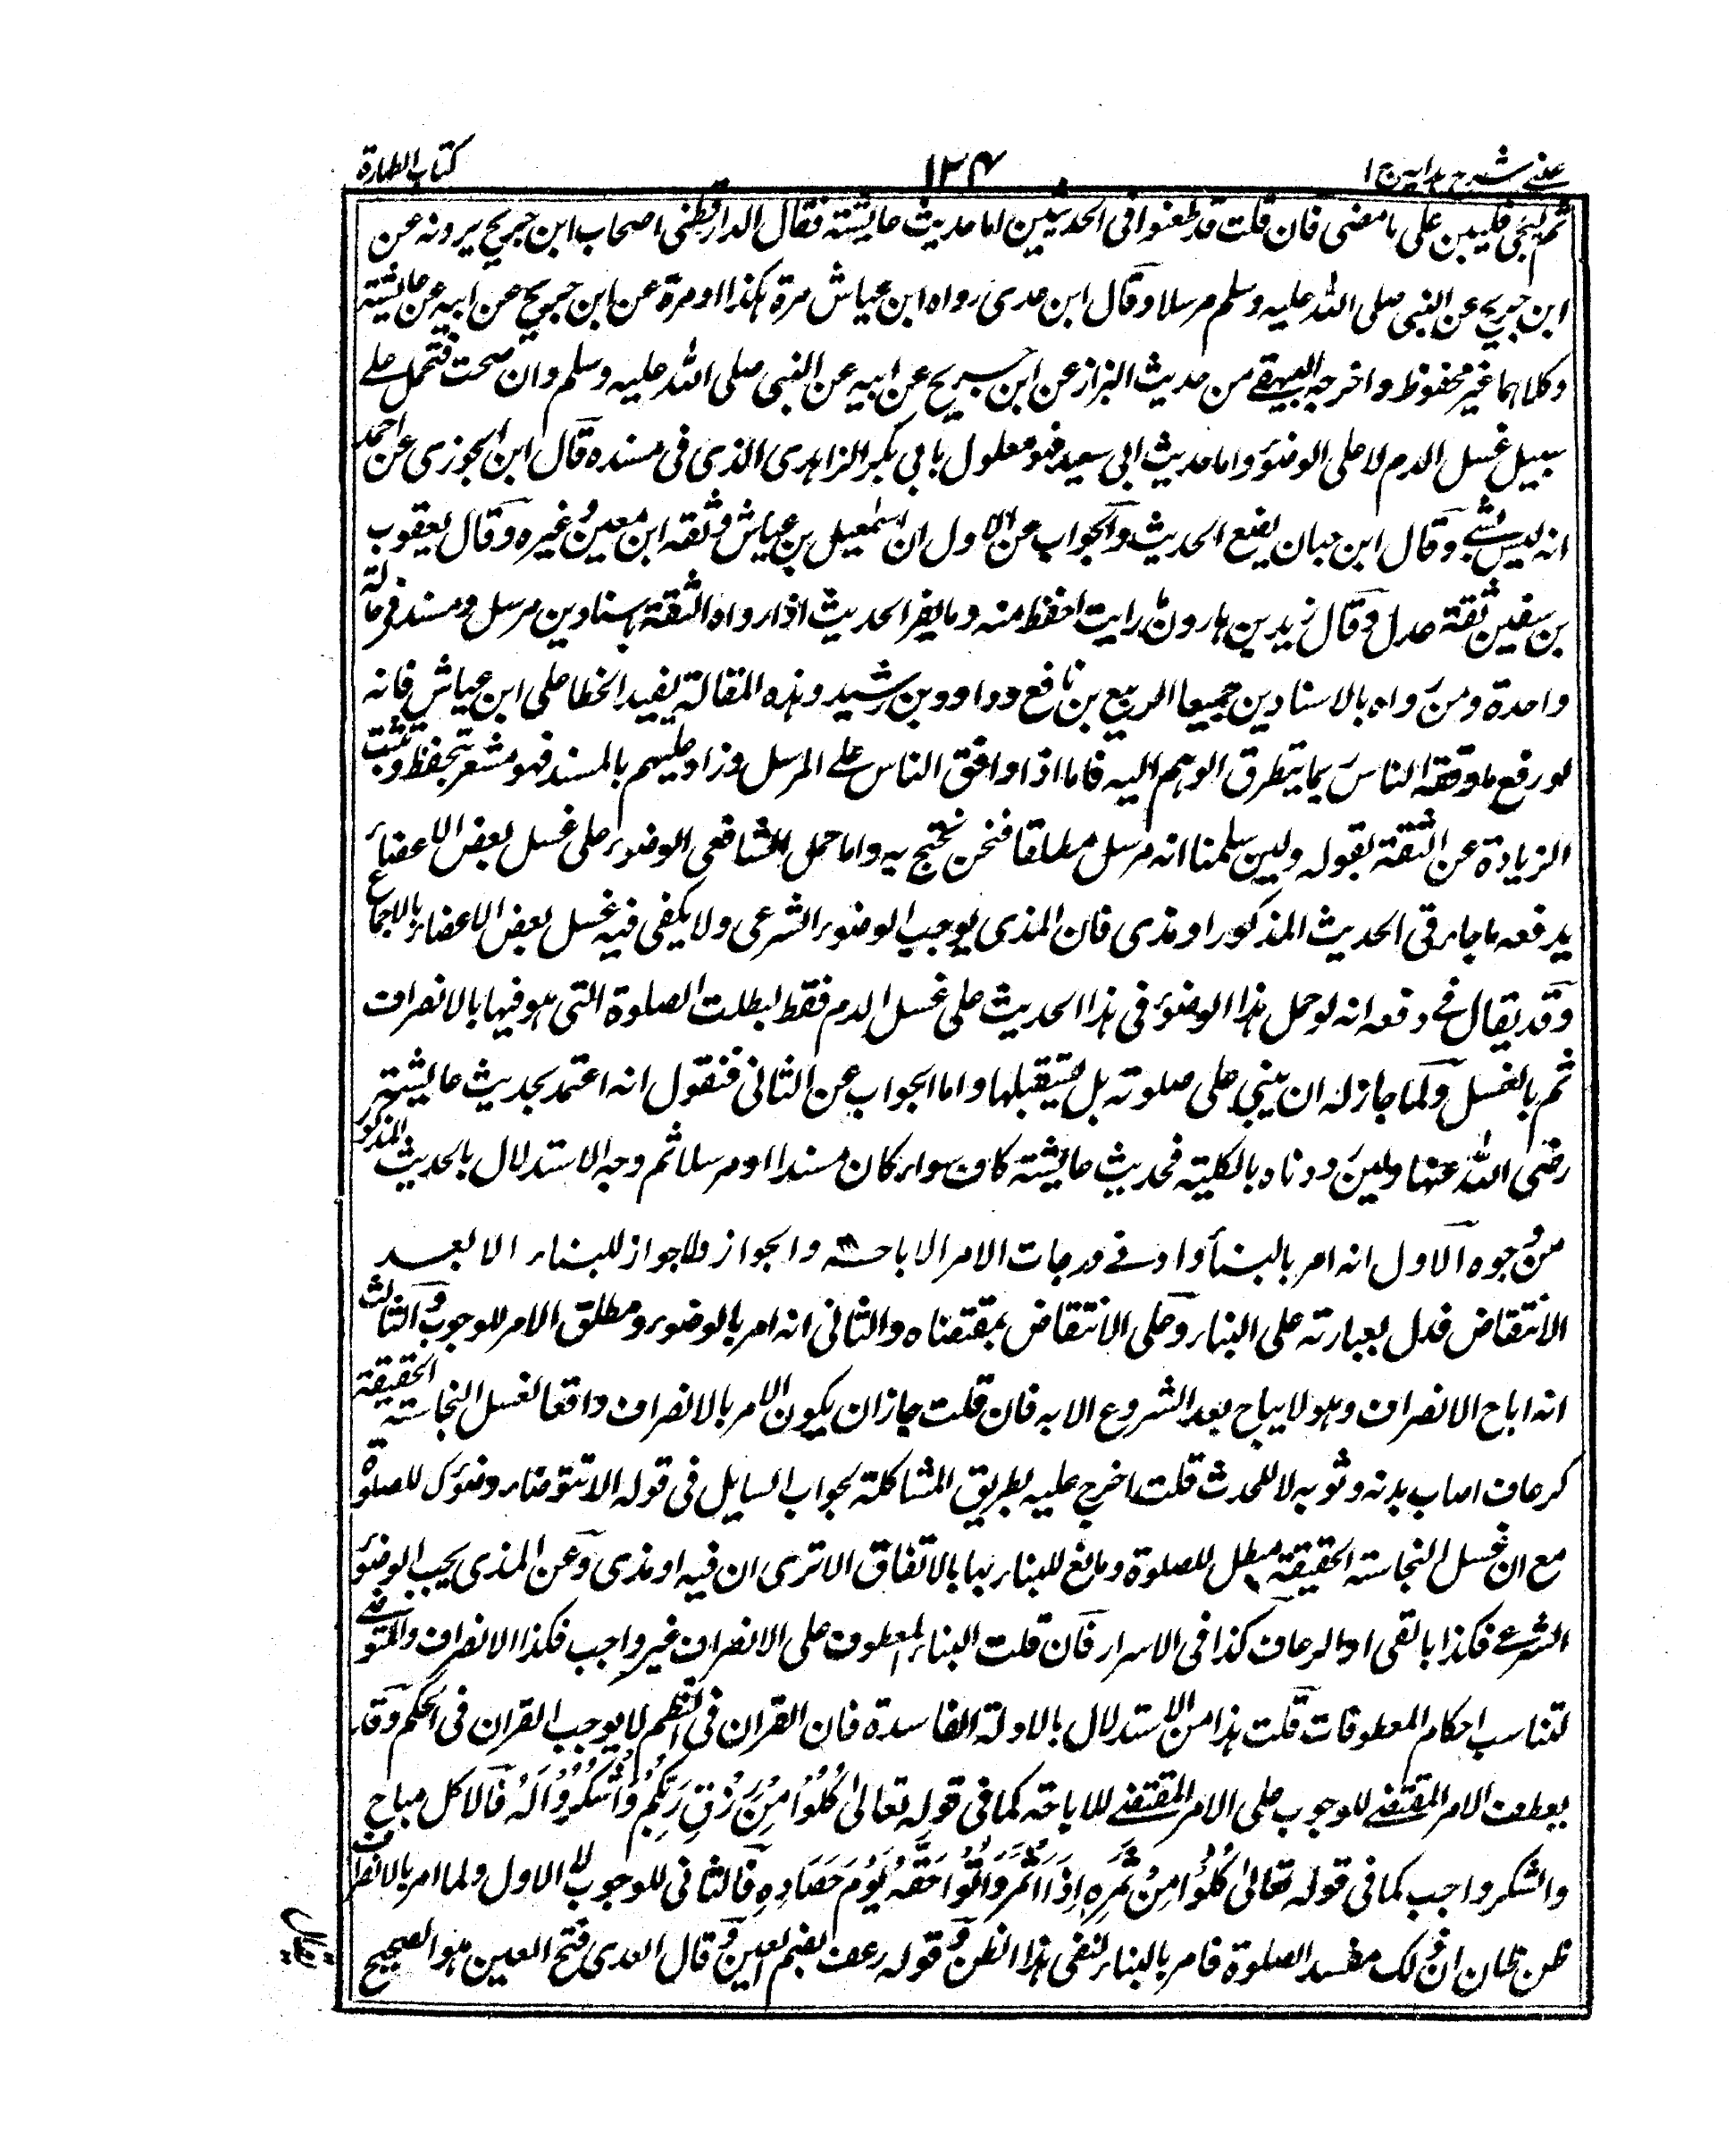 عینی شرح ہدایہ ج ۱
۱۲۴
کتاب الطہارة
ثم لیجئ فلیبن علی ما مضی فان قلت قد طعنوا فی الحدیثین اما حدیث عایشة فقال الدارقطنی اصحاب ابن جریج یروونه عن
ابن جریج عن النبی صلی الله علیه وسلم مرسلا وقال ابن عدی رواه ابن عیاش مرة ہکذا او مرة عن ابن جریج عن ابیه عن عایشة
وکلاہما غیر محفوظ واخرجه البیہقے من حدیث البزاز عن ابن جریج عن ابیه عن النبی صلی الله علیه وسلم وان صحت فتحمل علے
سبیل غسل الدم لا علی الوضوٴ واما حدیث ابی سعید فہو معلول بابی بکر الزاہدی الذی فی مسنده قال ابن الجوزی عن احمد
انه لیس بشے وقال ابن حبان یضع الحدیث والجواب عن الاول ان اسمٰعیل بن عیاش وثقه ابن معین وغیره وقال یعقوب
بن سفین ثقة عدل وقال زید بن ہارون رایت احفظ منه وما یضر الحدیث اذا رواه الثقة باسنادین مرسل ومسند فی حالة
واحدة ومن رواه بالاسنادین جمیعا الربیع بن نافع وداوود بن رشید وہذه المقالة یفید الخطا علی ابن عیاش فانه
لو رفع ما وقفه الناس بما یتطرق الوہم الیه فاما اذا وافق الناس علی المرسل وزاد علیہم بالمسند فہو مشعر بتحفظ وتثبت
الزیادة عن الثقة بقوله ولین سلمنا انه مرسل مطلقا فنحن نحتج به واما حمل الشافعی الوضوء علی غسل بعض الاعضاٴ
یدفعه ما جاء فی الحدیث المذکور او مذی فان المذی یوجب الوضوء الشرعی ولا یکفی فیه غسل بعض الاعضاء بالاجماع
وقد یقال فے دفعه انه لو حمل ہذا الوضوٴ فی ہذا الحدیث علی غسل الدم فقط لبطلت الصلوة التی ہو فیہا بالانصراف
ثم بالغسل ولما جاز له ان یبنی علی صلوته بل یستقبلہا واما الجواب عن الثانی فنقول انه اعتمد بحدیث عایشة
رضی الله عنہا ولین رددناه بالکلیة فحدیث عایشة کاف سواء کان مسندا او مرسلا ثم وجه الاستدلال بالحدیث المذکور
من وجوه الاول انه امر بالبناٴ وادنے درجات الامر الاباحة والجواز ولا جواز للبناء الا بعد
الانتقاض فدل بعبارته علی البناء وعلی الانتقاض بمقتضاه والثانی انه امر بالوضوء ومطلق الامر للوجوب والثالث
انه اباح الانصراف وہو لا یباح بعد الشروع الا به فان قلت جاز ان یکون الامر بالانصراف واقعا لغسل النجاسة الحقیقة
کرعاف اصاب بدنه وثوبه لا للحدث قلت اخرج علیه بطریق المشاکلة بجواب السایل فی قوله الا تتوضاء وضوٴک للصلوة
مع ان غسل النجاسة الحقیقة مبطل للصلوة ومانع للبناء بہا بالاتفاق الا تری ان فیه او مذی وعن المذی یجب الوضوٴ
الشرعے فکذا بالقی او الرعاف کذا فی الاسرار فان قلت البناء المعطوف علی الانصراف غیر واجب فکذا الانصراف والتوضے
لتناسب احکام المعطوفات قلت ہذا من الاستدلال بالادلة الفاسدة فان القران فی النظم لا یوجب القران فی الحکم وقد
یعطف الامر المقتضے للوجوب علی الامر المقتضے للاباحة کما فی قوله تعالیٰ کُلُوْا مِنْ رِّزْقِ رَبِّکُمْ وَاشْکُرُوْا لَهُ فالاکل مباح
والشکر واجب کما فی قوله تعالیٰ کُلُوْا مِنْ ثَمَرِهِ اِذَا اَثْمَرَ وَاٰتُوْا حَقَّهُ یَوْمَ حَصَادِهِ فالثانی للوجوب لا الاول ولما امر بالانصراف
ظن ظان ان ذلک مفسد الصلوة فامر بالبناء لنفی ہذا الظن وقوله رعف بضم العین وقال السعدی فتح العین ہو الصحیح